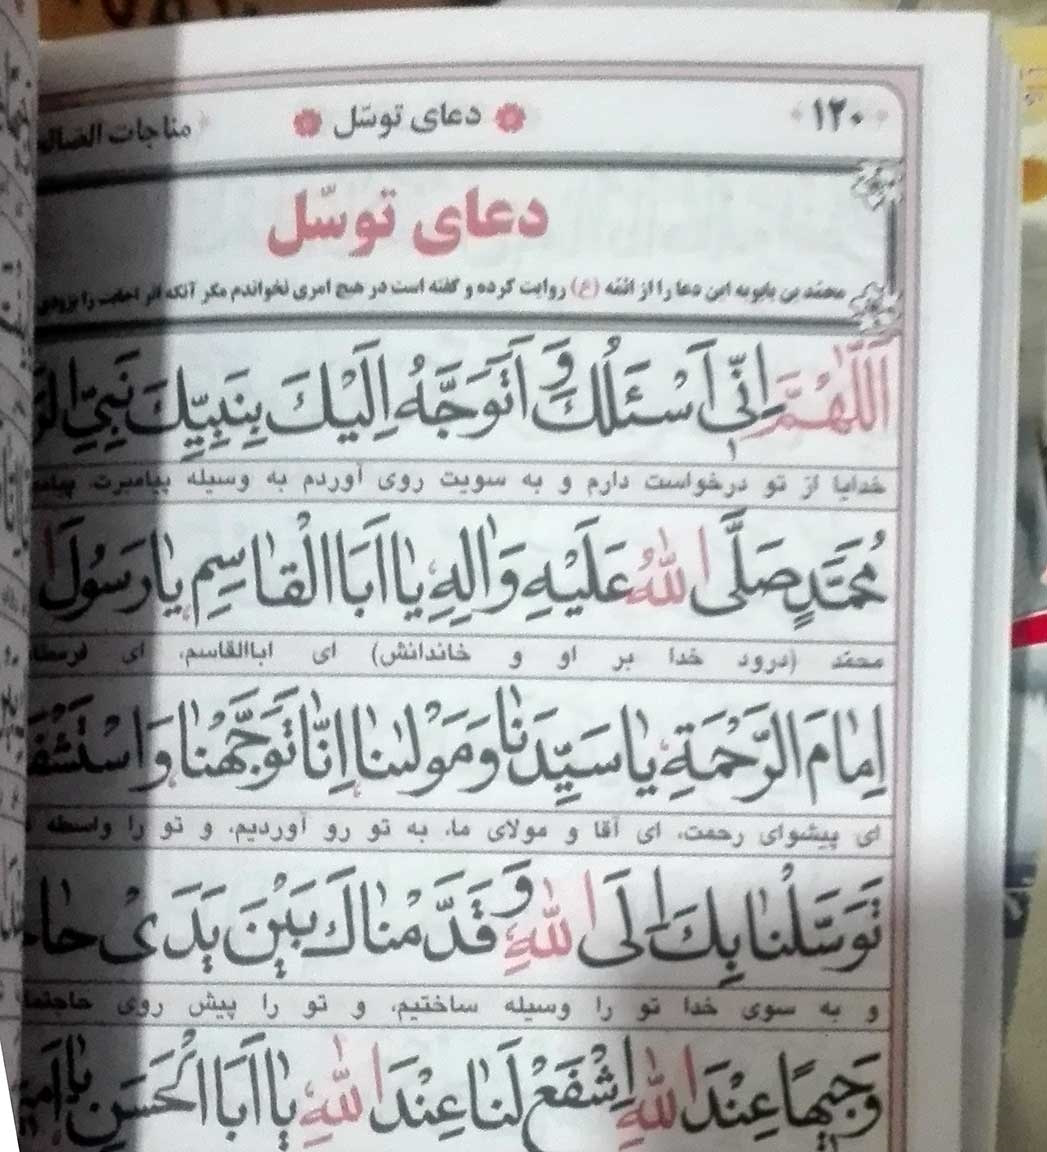 ۱۲۰ دعای توسّل مناجات
دعای توسّل
محمّد بن بابویه این دعا را از ائمّه (ع) روایت کرده و گفته است در هیچ امری نخواندم مگر آنکه اثر اجابت را بزودی
اَللّٰهُمَّ اِنّی اَسْئَلُكَ وَ اَتَوَجَّهُ اِلَیْكَ بِنَبِیِّكَ نَبِیِّ
خدایا از تو درخواست دارم و به سویت روی آوردم به وسیله پیامبرت
مُحَمَّدٍ صَلَّی اللهُ عَلَیْهِ وَ الِهِ یا اَبَا الْقاسِمِ یا رَسُولَ
محمّد (درود خدا بر او و خاندانش) ای اباالقاسم، ای
اِمامَ الرَّحْمَةِ یا سَیِّدَنا وَ مَوْلینا اِنّا تَوَجَّهْنا
ای پیشوای رحمت، ای آقا و مولای ما، به تو رو آوردیم، و تو را واسطه
تَوَسَّلْنا بِكَ اِلَی اللهِ وَ قَدَّمْناكَ بَیْنَ یَدَیْ
و به سوی خدا تو را وسیله ساختیم، و تو را پیش روی
وَجیهًا عِنْدَ اللهِ اِشْفَعْ لَنا عِنْدَ اللهِ یا اَبَا الْحَسَنِ یا